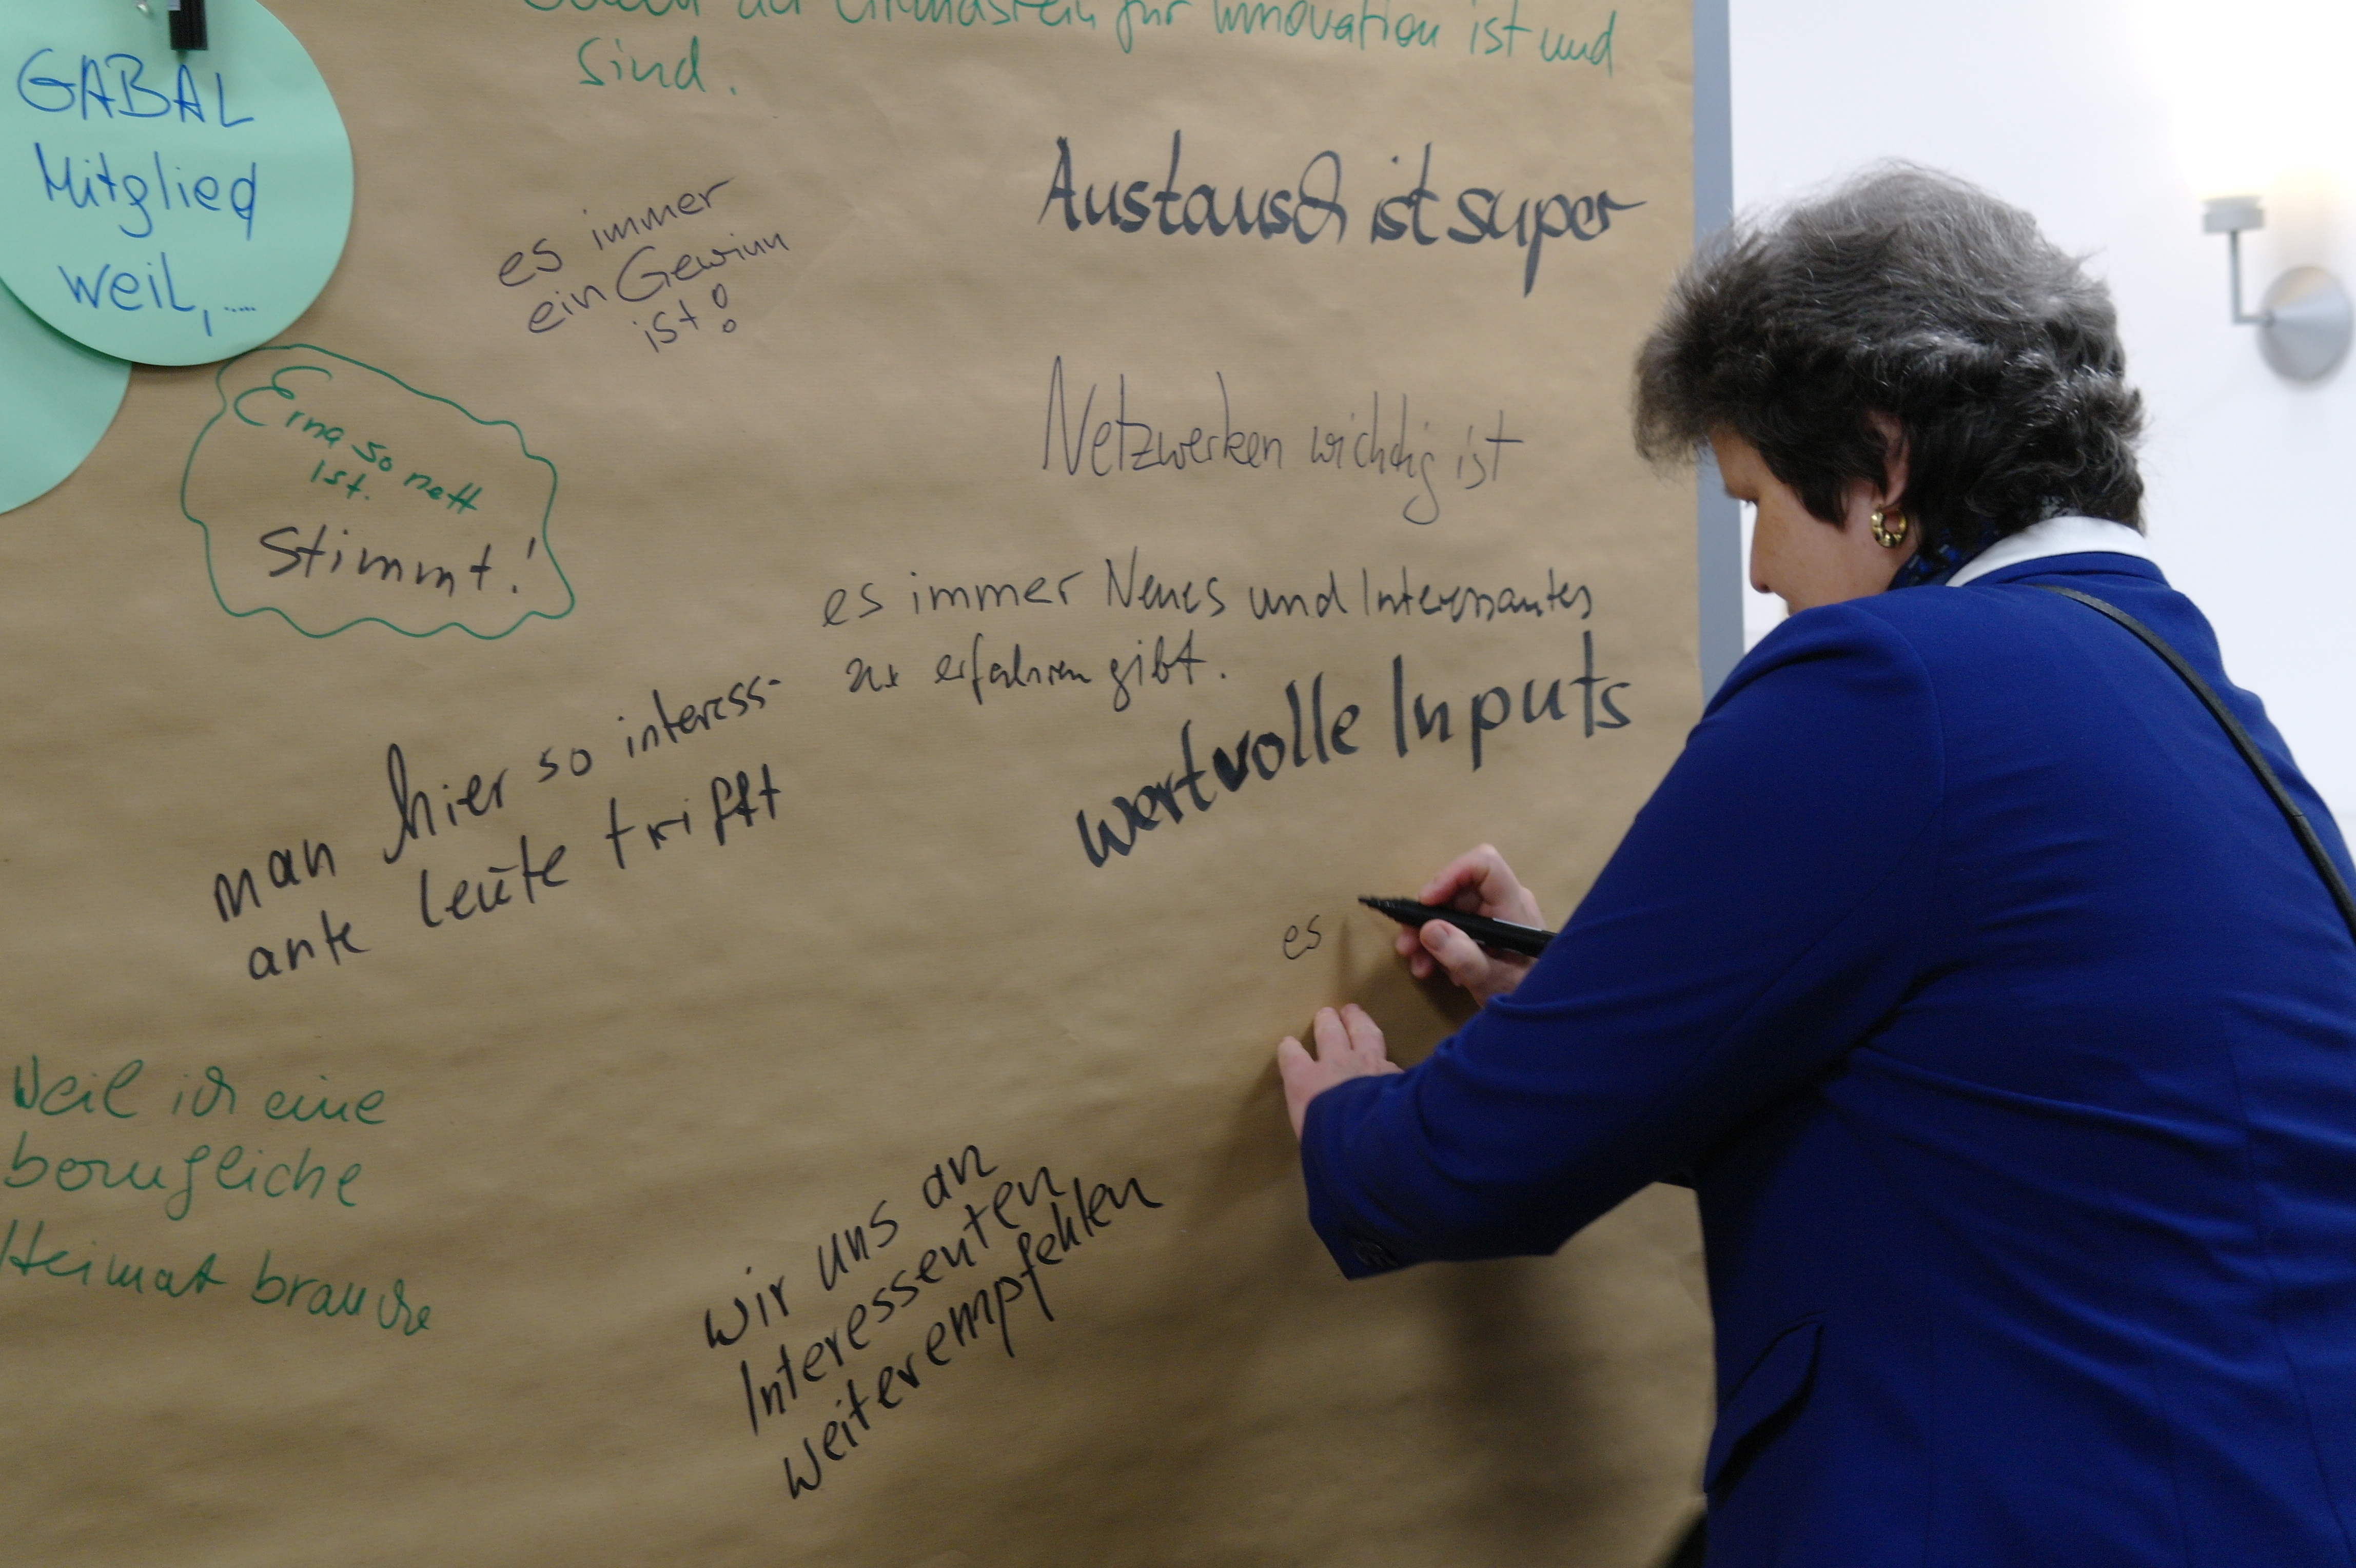 der Grundstein für Innovation ist und
sind.
GABAL
Mitglied
weil,.....
es immer
ein Gewinn
ist!
Austausch ist super
Erna so nett
ist.
Stimmt!
Netzwerken wichtig ist
es immer Neues und Interessantes
zu erfahren gibt.
wertvolle Inputs
man hier so interess-
ante leute trifft
es
Weil ich eine
berufliche
Heimat brauche
wir uns an
Interessenten
weiterempfehlen